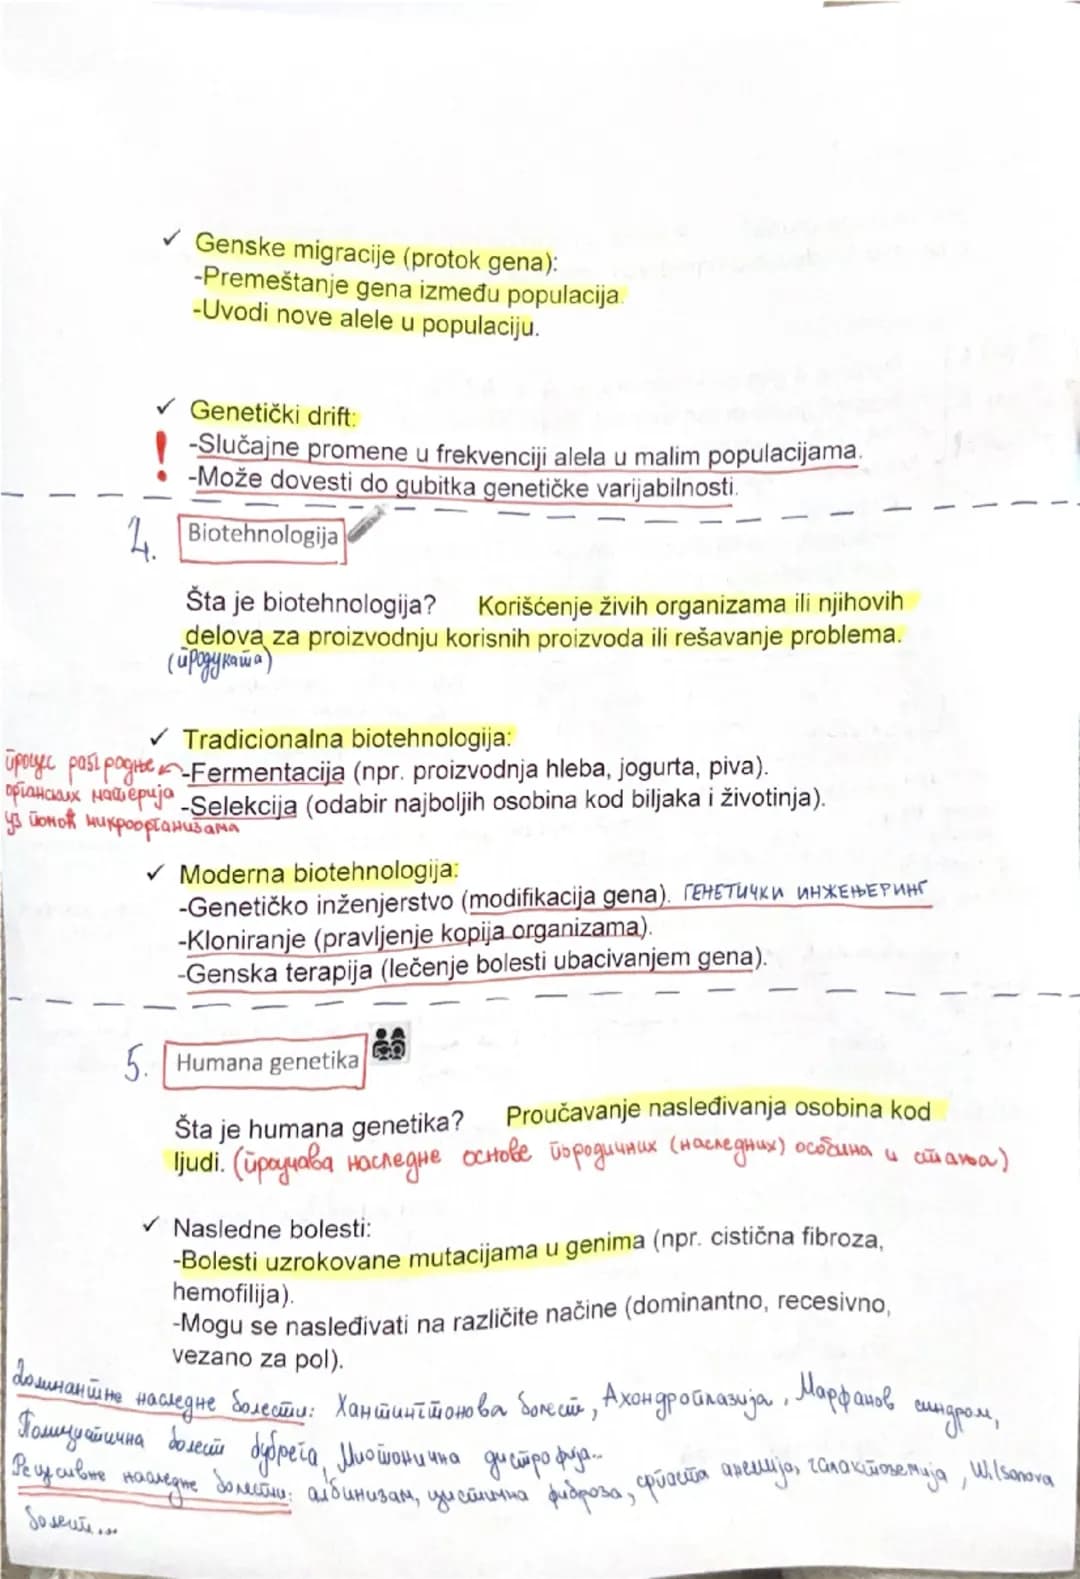 ✓ Genske migracije (protok gena):
-Premeštanje gena između populacija.
-Uvodi nove alele u populaciju.
✓ Genetički drift:
! -Slučajne promene u frekvenciji alela u malim populacijama.
-Može dovesti do gubitka genetičke varijabilnosti.
4. Biotehnologija
Šta je biotehnologija? Korišćenje živih organizama ili njihovih
delova za proizvodnju korisnih proizvoda ili rešavanje problema.
(продуката)
✓ Tradicionalna biotehnologija:
процес разградње -Fermentacija (npr. proizvodnja hleba, jogurta, piva).
органских материја -Selekcija (odabir najboljih osobina kod biljaka i životinja).
уз помоћ микроорганизама
✓ Moderna biotehnologija:
-Genetičko inženjerstvo (modifikacija gena). ГЕНЕТИЧКИ ИНЖЕЊЕРИНГ
-Kloniranje (pravljenje kopija organizama).
-Genska terapija (lečenje bolesti ubacivanjem gena).
5. Humana genetika
Šta je humana genetika? Proučavanje nasleđivanja osobina kod
ljudi. (проучава наследне основе породичних (наследних) особина и стања)
✓ Nasledne bolesti:
-Bolesti uzrokovane mutacijama u genima (npr. cistična fibroza,
hemofilija).
-Mogu se nasleđivati na različite načine (dominantno, recesivno,
vezano za pol).
Доминантне наследне болести: Хантингтонова болест, Ахондроплазија, Марфанов синдром,
Полицистична болест бубрега, Миотонична дистрофија..
Рецесивне наследне болести: албинизам, цистична фиброза, српаста анемија, галактоземија, Wilsonova
болест...